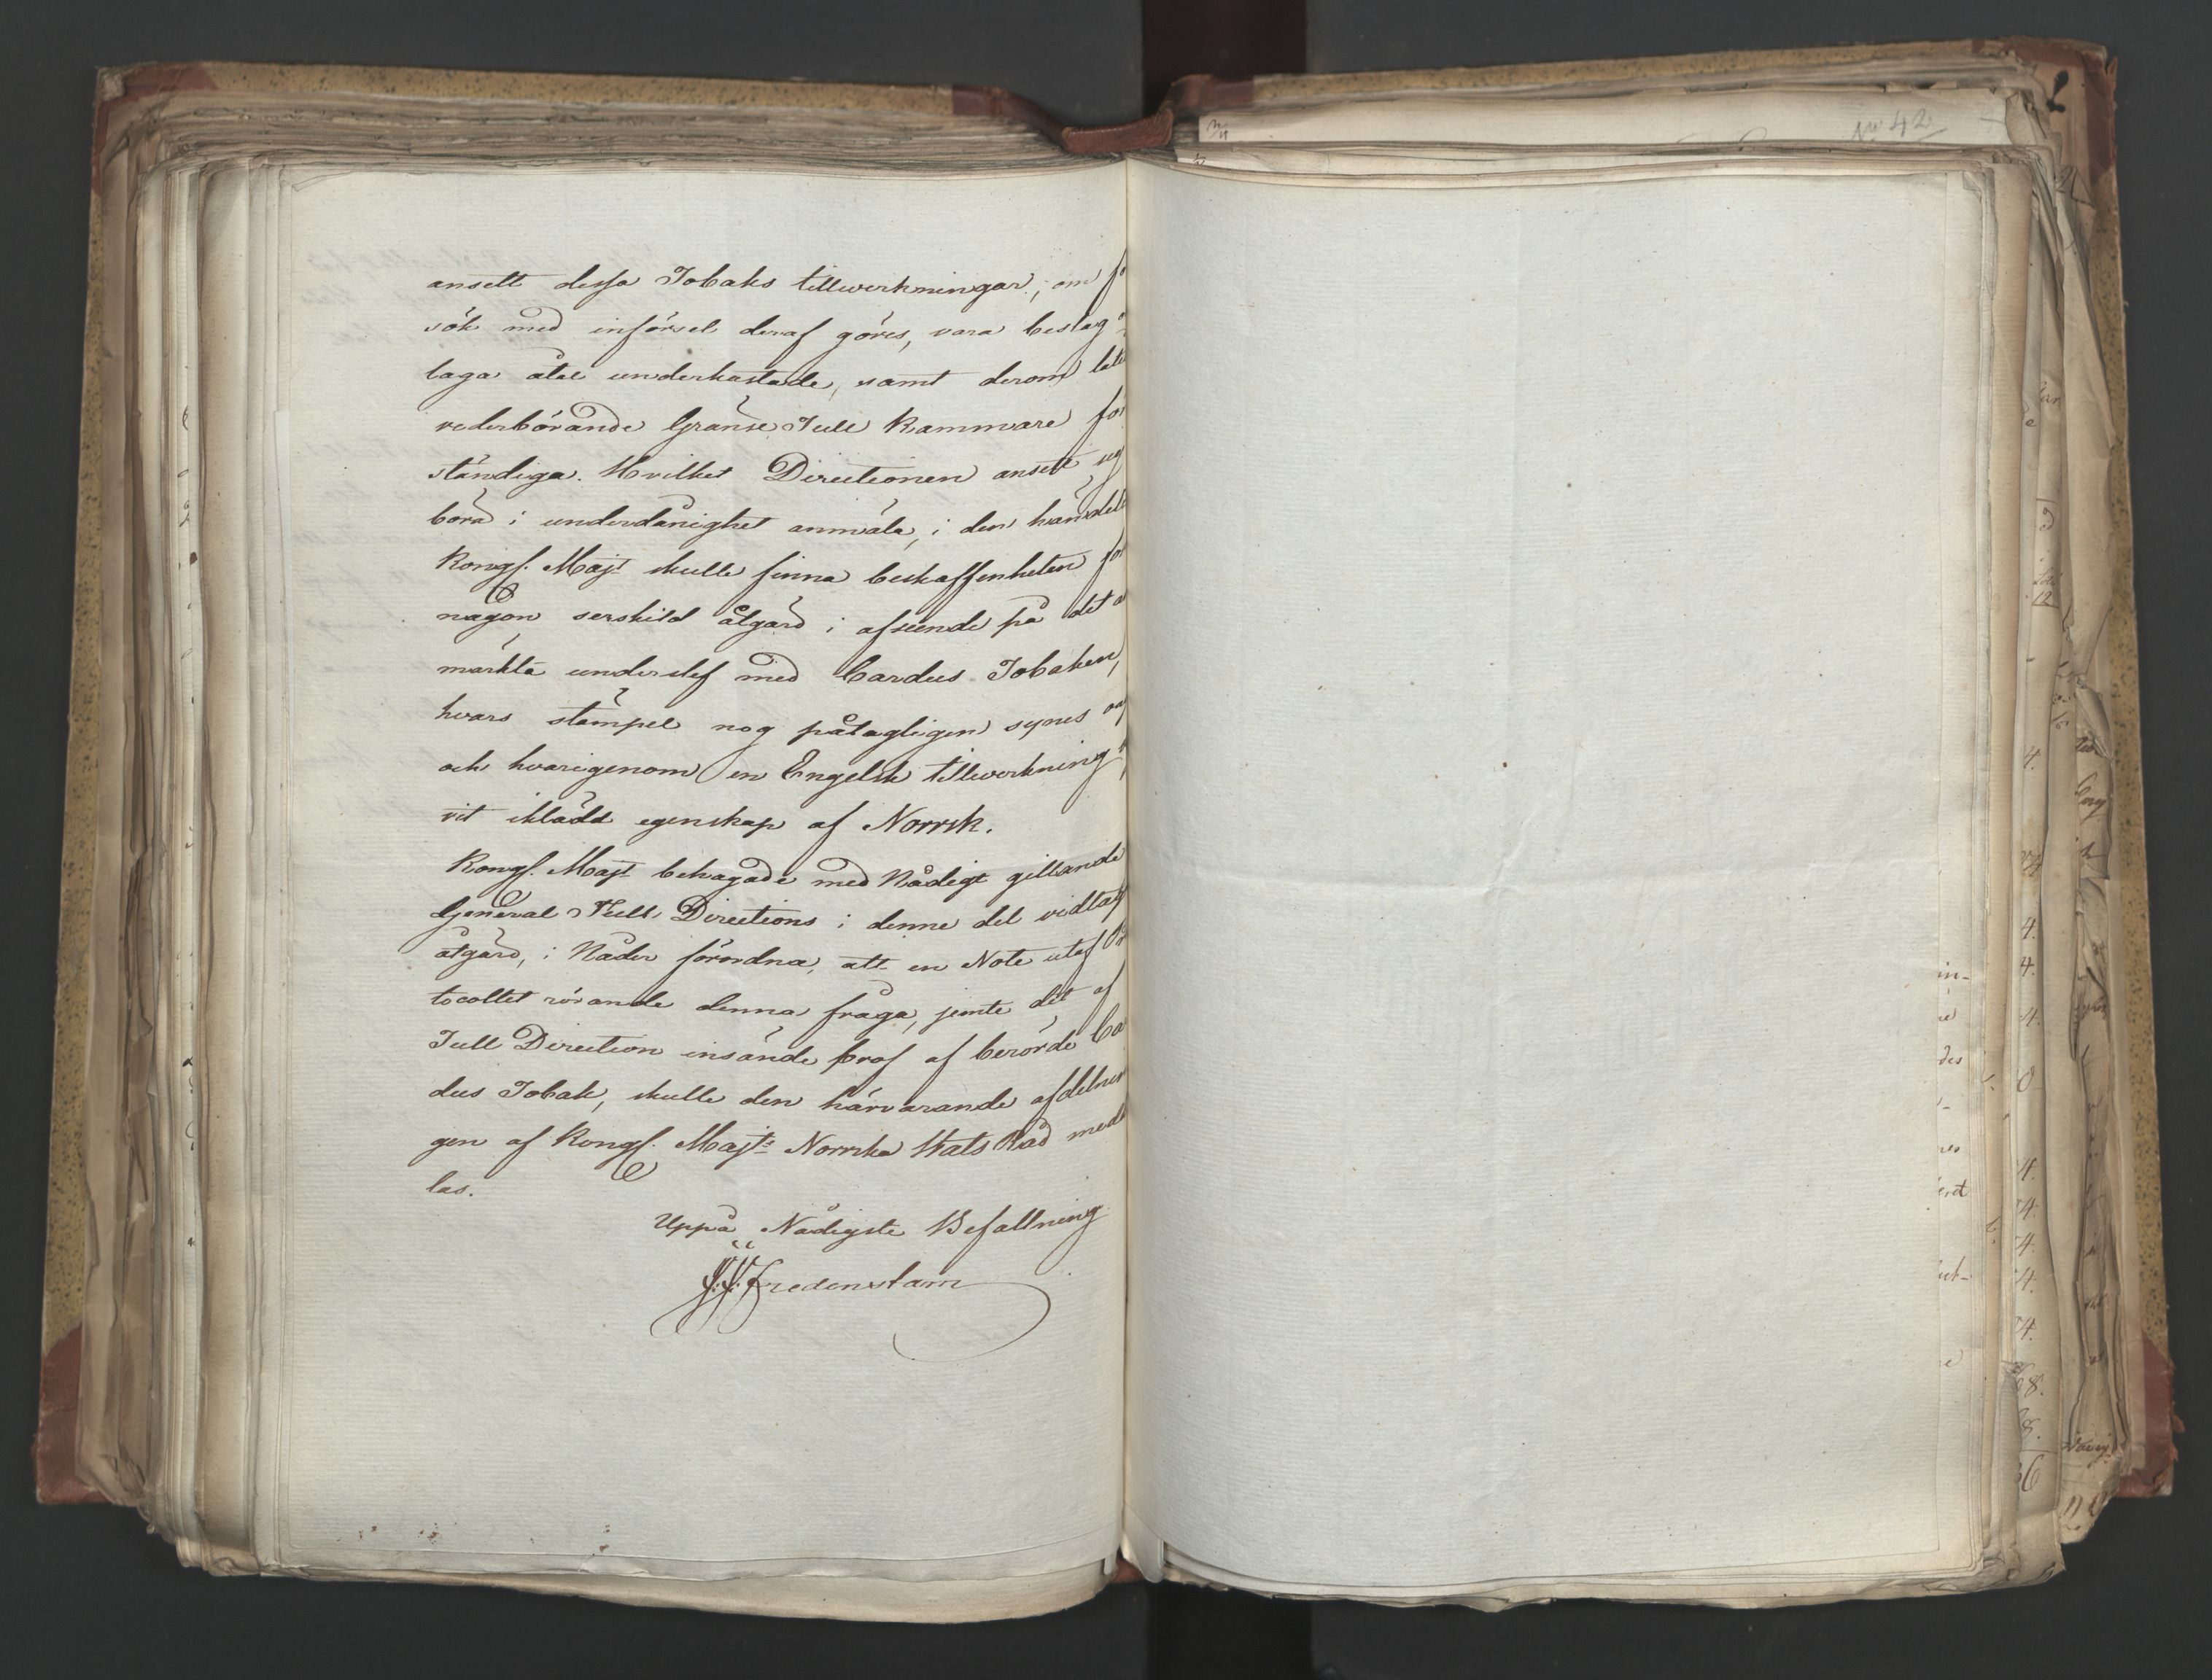 ansett dessa Tobaks tillwerkningar, om fö
sök med införsel deraf göres, vara beslag o
laga åtal underkastade, samt derom låti
vederbörande Gränse Tull Kammare för
ständiga. Hvilket Directionen ansett sig
böra i underdånighet anmäla, i den händels
Kongl. Majt skulle finna beskaffenheten for
någon serskild åtgärd i afseende på det a
märkta underslef med Cardus Tobaken,
hvars stämpel nog påtagligen synes
och hvarigenom en Engelsk tillwerkning
vit iklädd egenskap af Norrsk.
Kongl. Majt behagade med Nådigt gillande
General Tull Directions i denne del vidtag
åtgärd, i Nåder förordna, att en Note utaf Pr
tocollet rörande denna fråga, jemte det af
Tull Direction insände prof af berörde Ca
dus Tobak, skulle den härvarande afdelnin
gen af Kongl. Majts Norrska Stats Råd medd
las.
Uppå Nådigste Befallning
J. J. Fredenstam
No 42